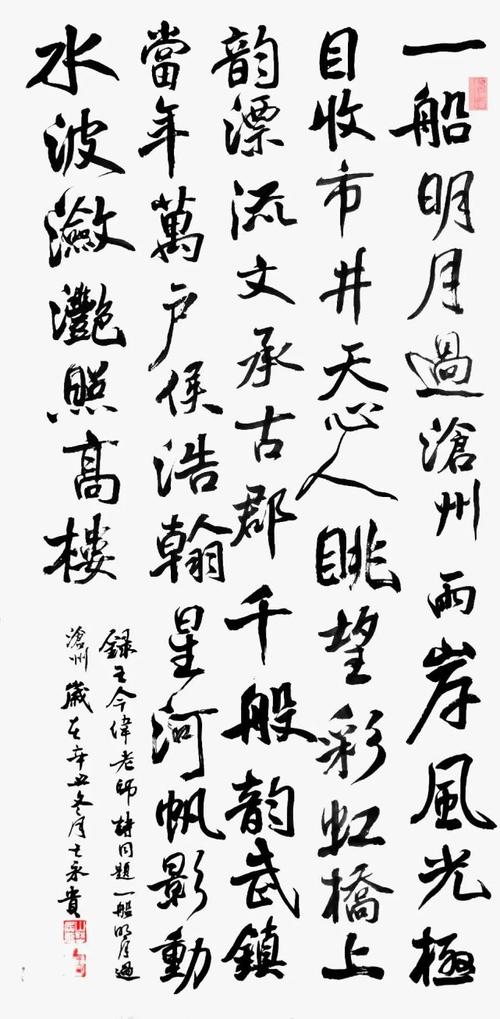 一船明月過滄州兩岸風光極
目收市井天心人眺望彩虹橋上
韵漂流文承古郡千般韵武鎮
當年萬户侯浩翰星河帆影動
水波瀲灧照高樓
録王今偉老師詩同題一船明月過
滄州歲在辛丑冬月永貴